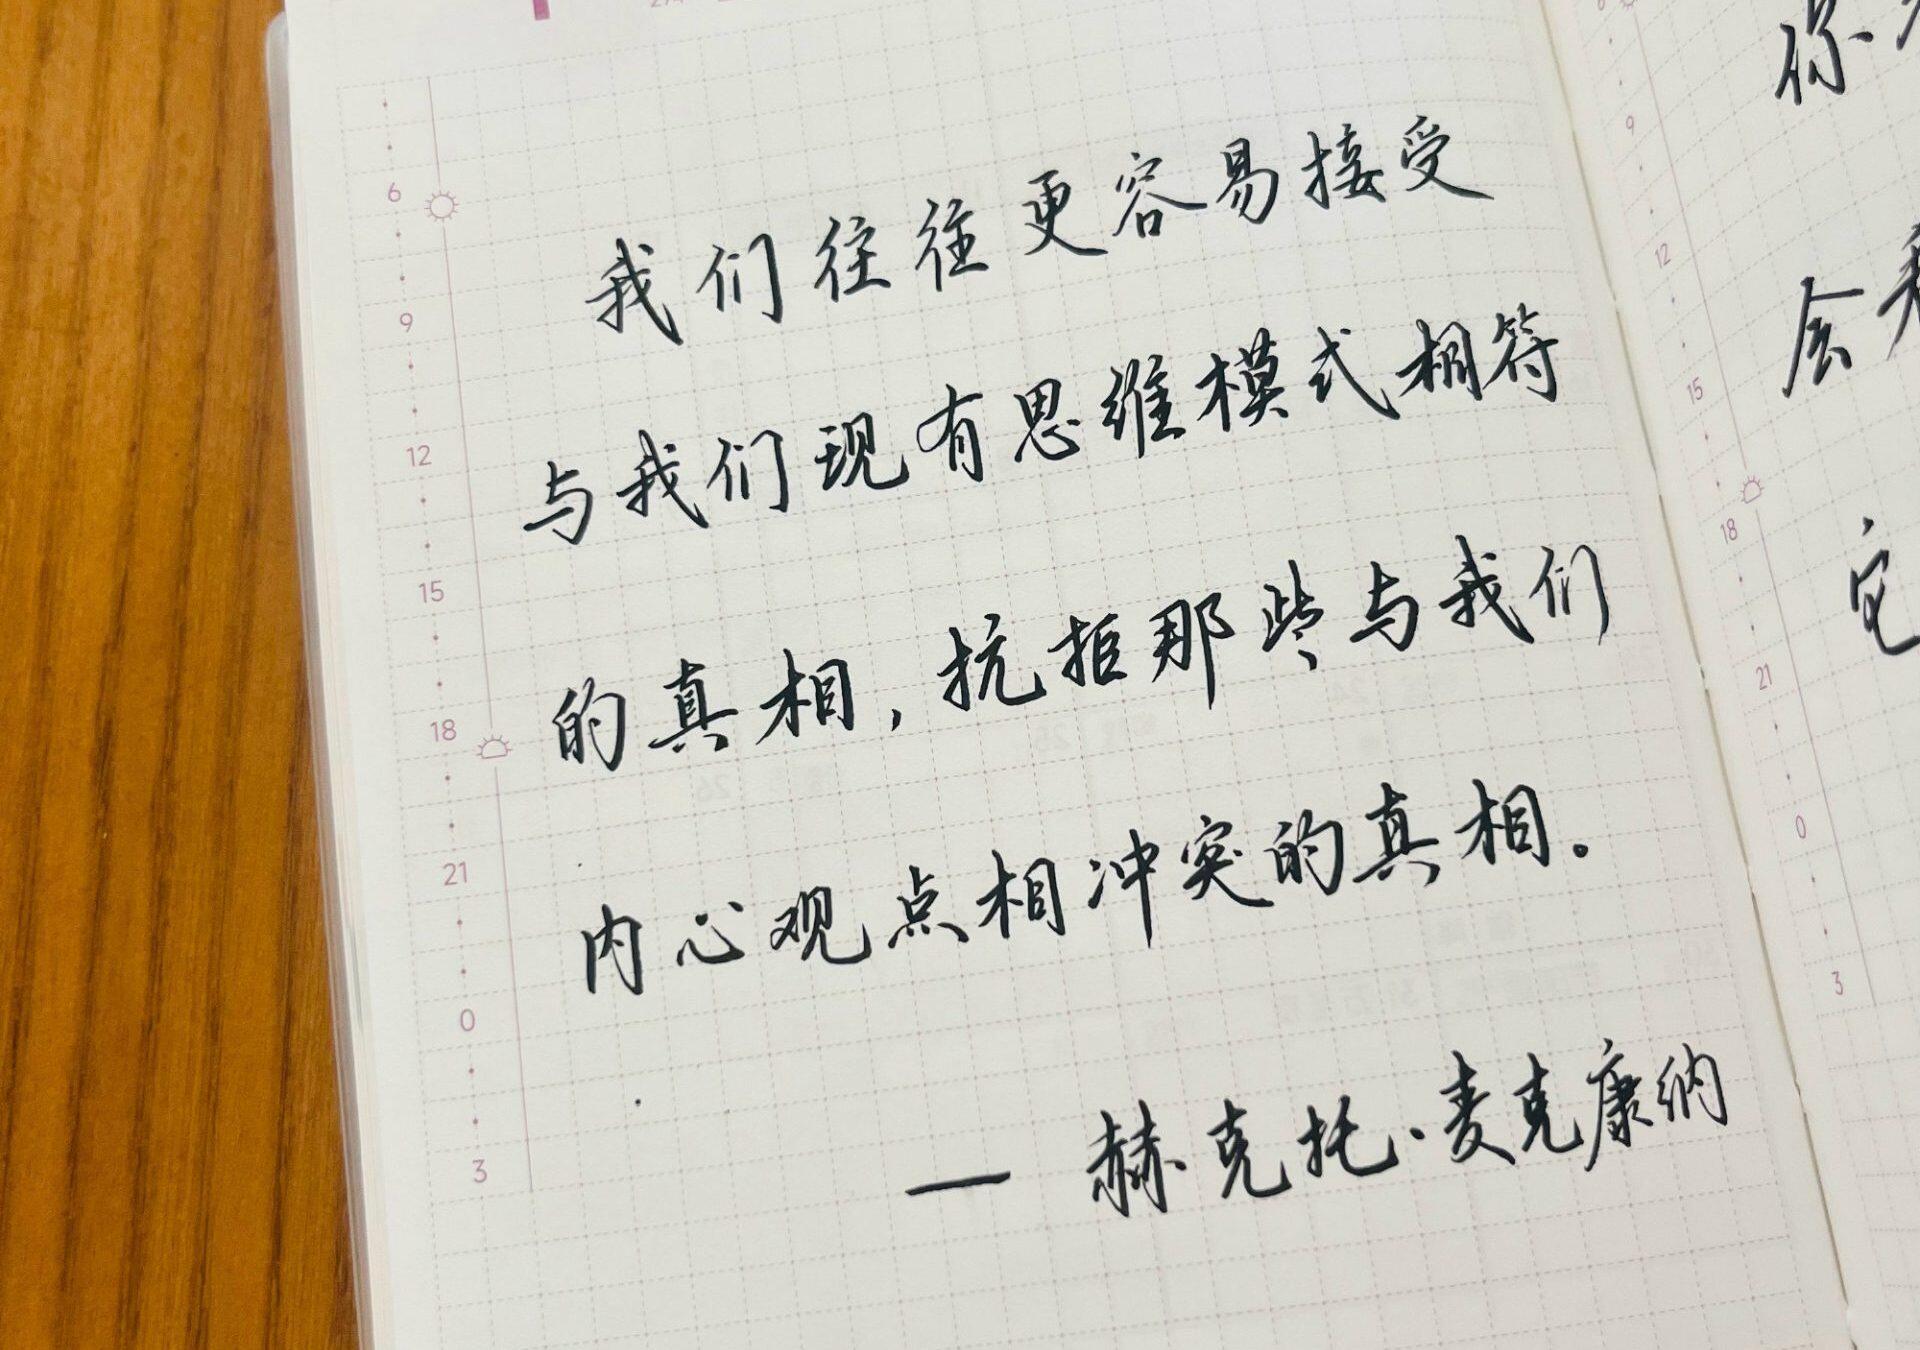 我们往往更容易接受
与我们现有思维模式相符
的真相，抗拒那些与我们
内心观点相冲突的真相。
— 赫克托·麦克康纳
6
9
12
15
18
21
0
3
你
会
它
9
12
15
18
21
0
3